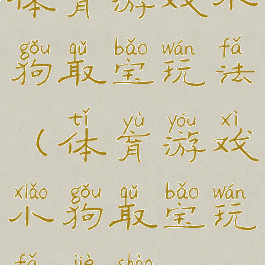 体育游戏小
gǒu qǔ bǎo wán fǎ
狗取宝玩法
tǐ yù yóu xì
（体育游戏
xiǎo gǒu qǔ bǎo wán
小狗取宝玩
fǎ jiè shào